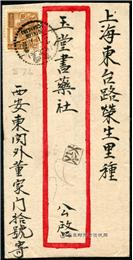 上海東台路榮生里種
玉堂書藥社
公啟
西安東関外董家門拾號寄